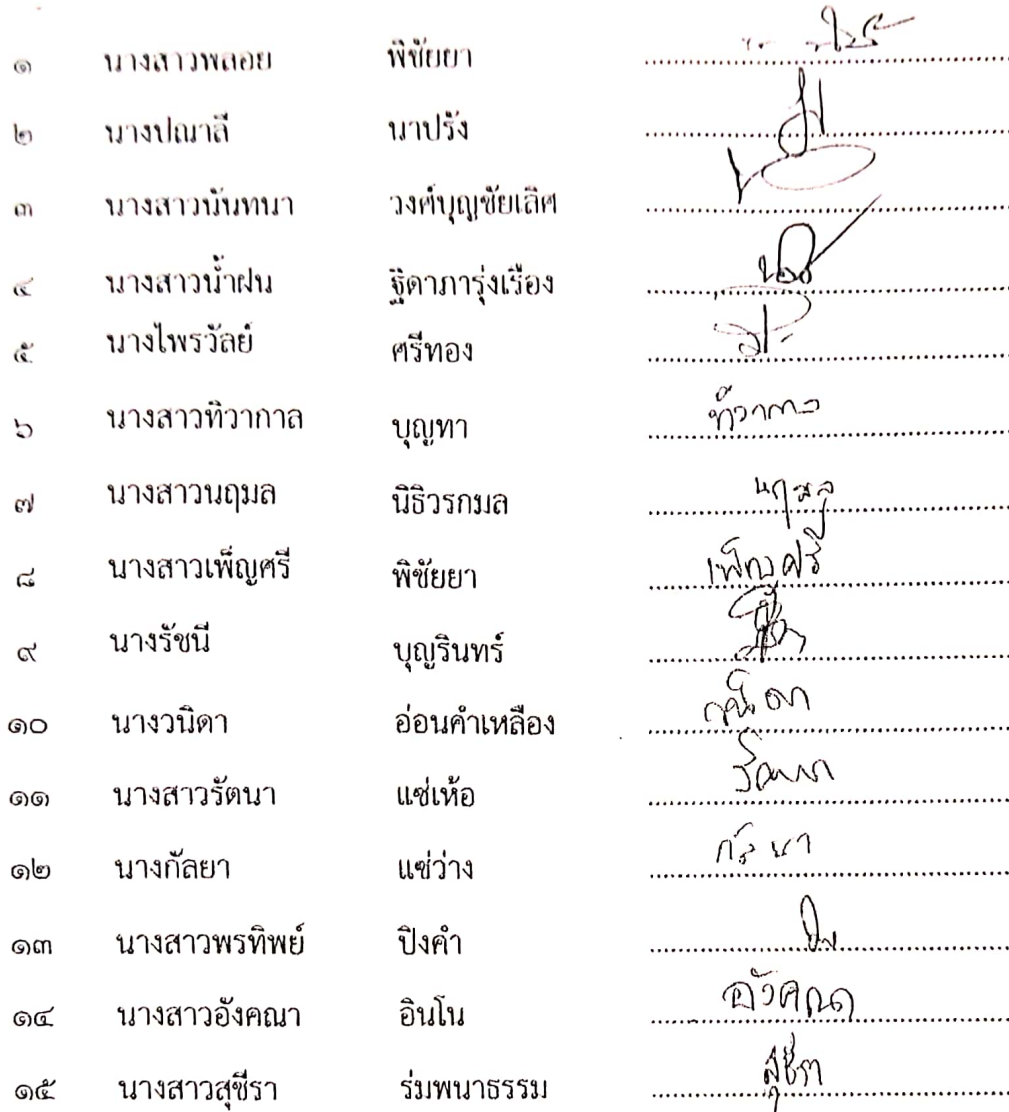 ๑ นางสาวพลอย พิชัยยา
๒ นางปณาลี นาปรัง
๓ นางสาวนันทนา วงศ์บุญชัยเลิศ
๔ นางสาวน้ำฝน ฐิดาภารุ่งเรือง
๕ นางไพรวัลย์ ศรีทอง
๖ นางสาวทิวากาล บุญทา ทิวากาล
๗ นางสาวนฤมล นิธิวรกมล นฤมล
๘ นางสาวเพ็ญศรี พิชัยยา เพ็ญศรี
๙ นางรัชนี บุญรินทร์
๑๐ นางวนิดา อ่อนคำเหลือง วนิดา
๑๑ นางสาวรัตนา แซ่เห้อ รัตนา
๑๒ นางกัลยา แซ่ว่าง
๑๓ นางสาวพรทิพย์ ปิงคำ
๑๔ นางสาวอังคณา อินโน อังคณา
๑๕ นางสาวสุชีรา ร่มพนาธรรม สุชีรา